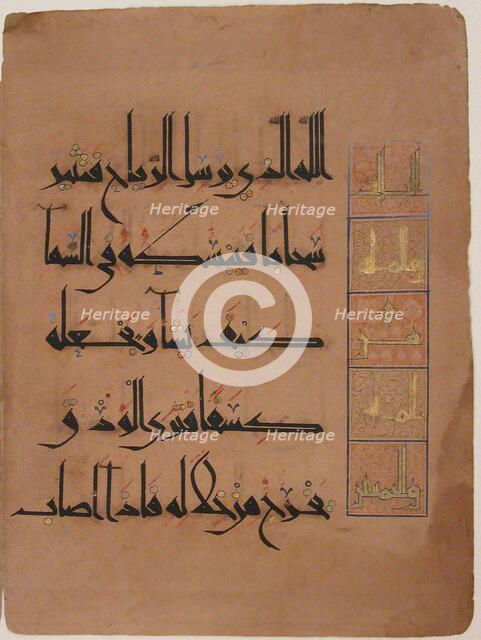 الله الذي يرسل الرياح فتثير
سحابا فيبسطه في السمآ
كيف يشآ ويجعله
كسفا فترى الودق
يخرج من خلاله فاذا اصاب
Heritage Heritage
Heritage Heritage
Heritage Heritage
Heritage Heritage
©